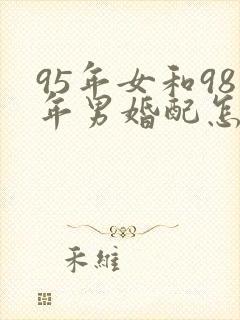 95年女和98
年男婚配怎
禾維